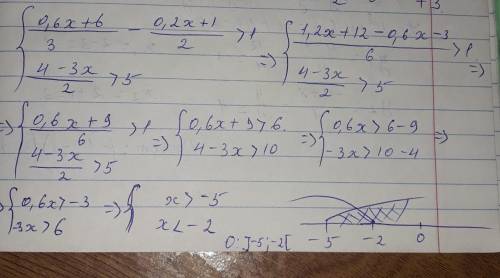 { (0,6x+6)/3 − (0,2x+1)/2 > 1 ; (4−3x)/2 > 5 ⇒ { (1,2x+12−0,6x−3)/6 > 1 ; (4−3x)/2 > 5 ⇒
⇒ { (0,6x+9)/6 > 1 ; (4−3x)/2 > 5 ⇒ { 0,6x+9>6 ; 4−3x>10 ⇒ { 0,6x>6−9 ; −3x>10−4 ⇒
⇒ { 0,6x>−3 ; −3x>6 ⇒ { x>−5 ; x<−2
О: ]−5;−2[
−5 −2 0